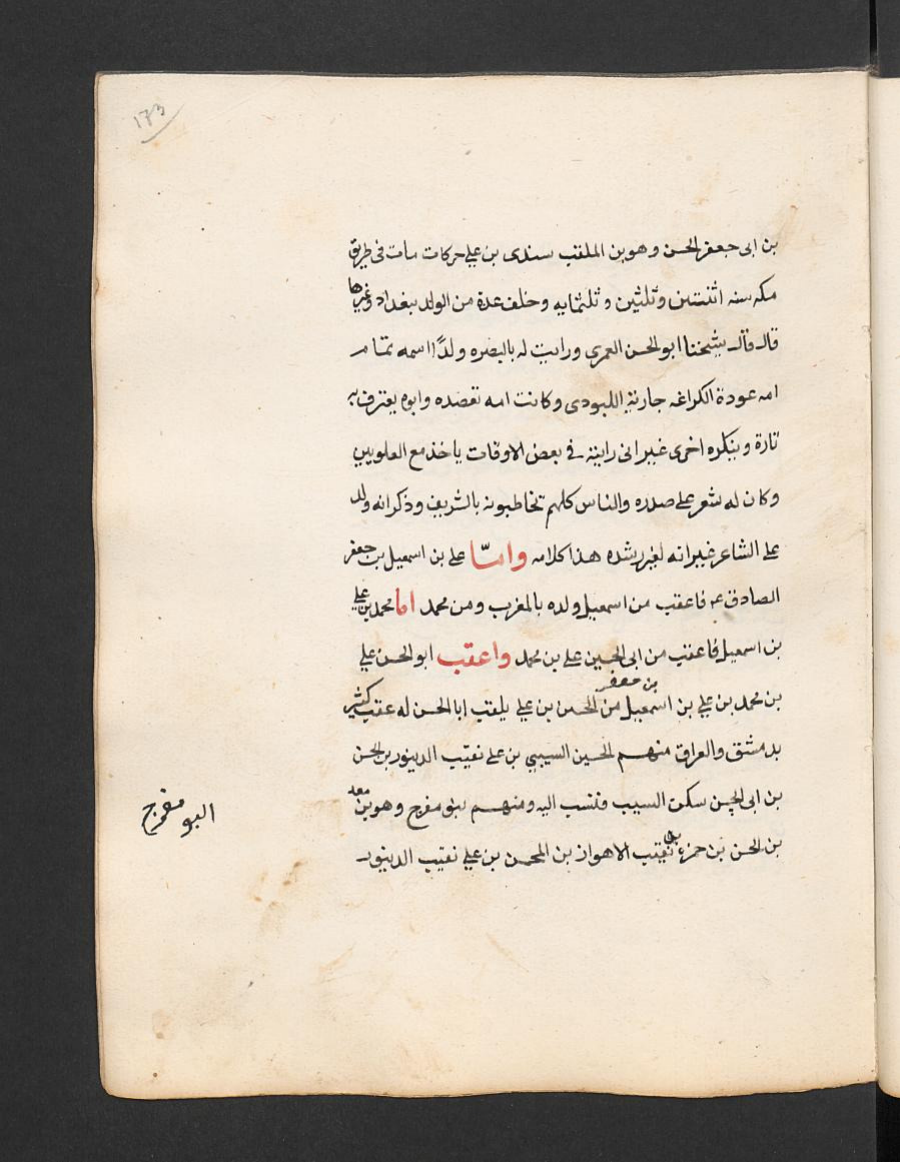 ١٧٣
بن ابى جعفر الحسن وهو بن الملقب سندى بن على حركات مات فى طريق
مكه سنه اثنتين وثلثين وثلثمايه وخلف عدة من الولد ببغداد وغيرها
قال قال شيخنا ابو الحسن العمري ورايت له بالبصره ولدًا اسمه تمام
امه عودة الكراعه جارية اللبودى وكانت امه تعضده وابوه يعترف به
تارة وينكره اخرى غير انى رايته فى بعض الاوقات ياخذ مع العلويين
وكان له شعر على صدره والناس كلهم تخاطبونه بالشريف وذكر انه ولد
على الشاعر غير انه لغير رشده هذا كلامه وامّا على بن اسمعيل بن جعفر
الصادق عم فاعقب من اسمعيل ولده بالمغرب ومن محمد اما محمد بن على
بن اسمعيل فاعقب من ابى الحسين على بن محمد واعقب ابو الحسن على
بن محمد بن على بن اسمعيل بن جعفر من الحسن بن على يلقب ابا الحسن له عقب كثير
بدمشق والعراق منهم الحسين السيبي بن على نقيب الدينور بن الحسن
بن ابى الحسن سكن السيب فنسب اليه ومنهم بنو مفرج وهو بن معد
بن الحسن بن حمزه نقيب الاهواز بن المحسن بن على نقيب الدينور
البو مفرج